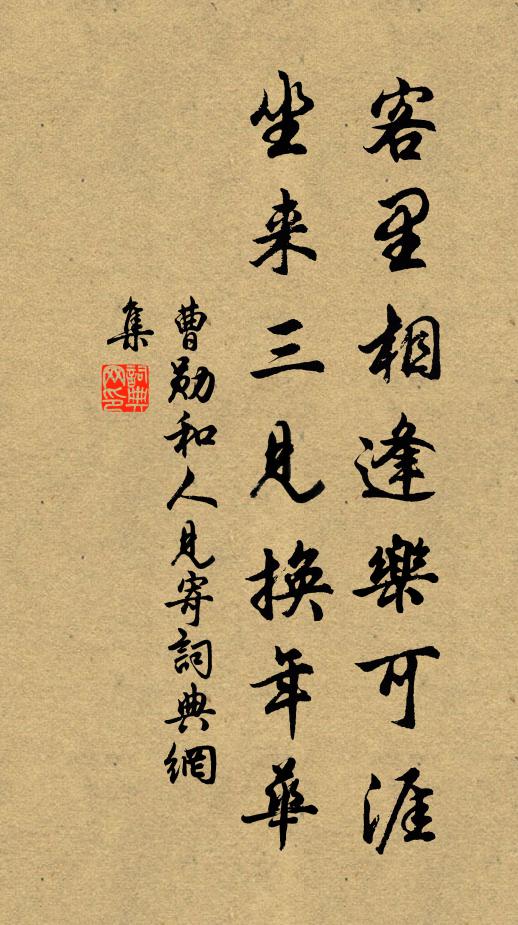 客里相逢樂可涯
坐来三見換年華
曹勛和人見寄詞典網
集
詞典网印